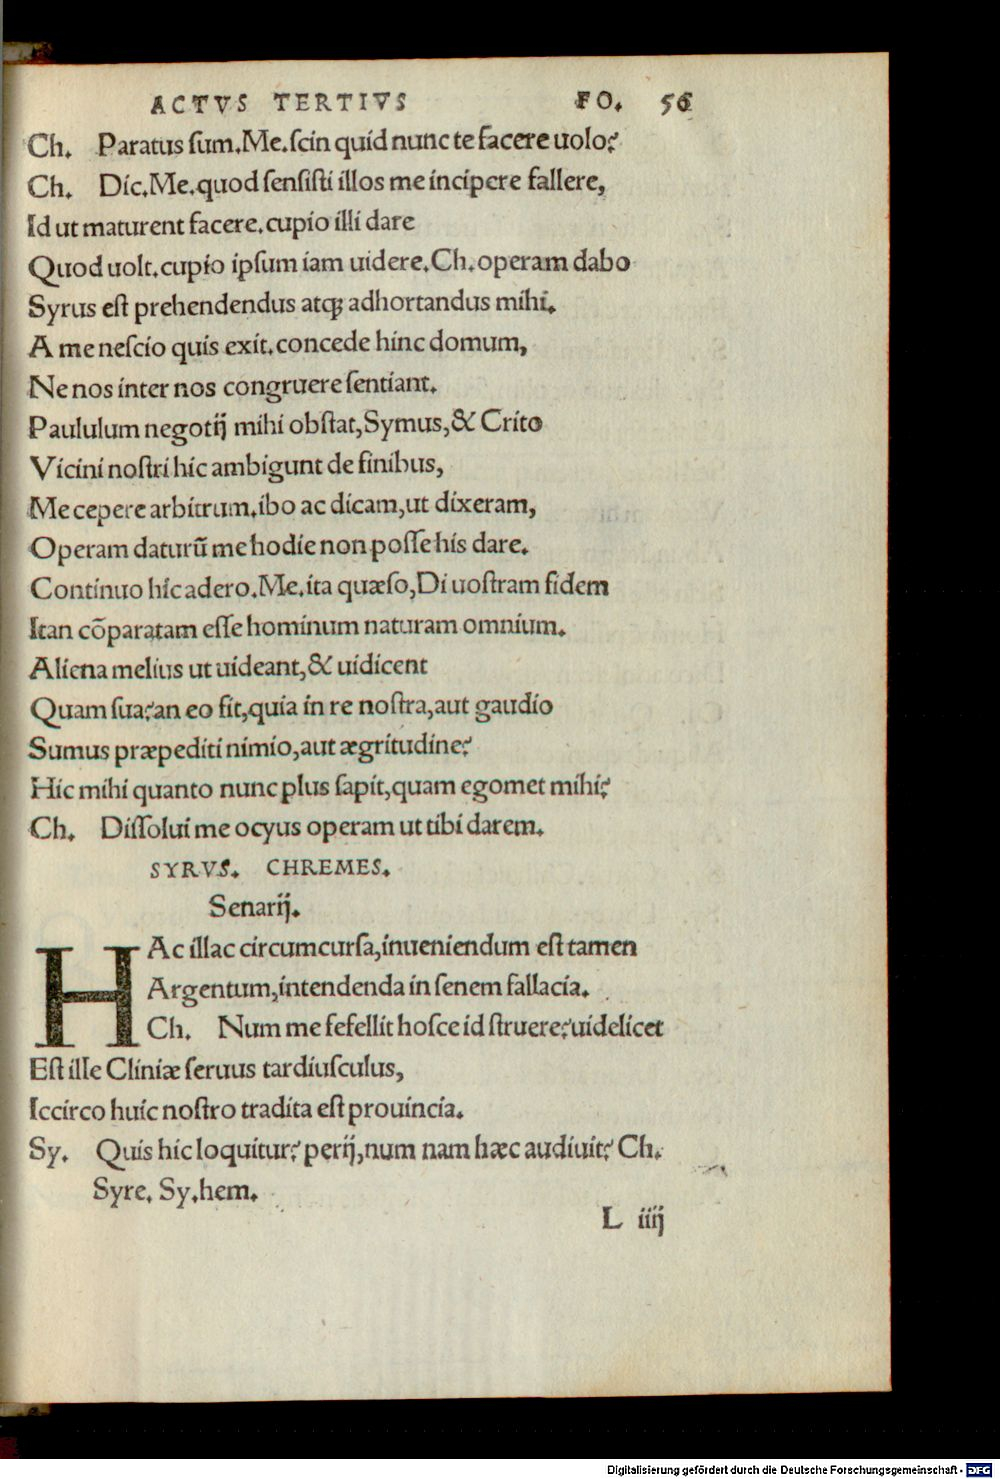 ACTVS TERTIVS FO. 56
Ch. Paratus ſum.Me.ſcin quid nunc te facere uolo?
Ch. Dic.Me.quod ſenſiſti illos me incipere fallere,
Id ut maturent facere.cupio illi dare
Quod uolt.cupio ipſum iam uidere.Ch.operam dabo
Syrus eſt prehendendus atqꝫ adhortandus mihi.
A me neſcio quis exit.concede hinc domum,
Ne nos inter nos congruere ſentiant.
Paululum negotij mihi obſtat,Symus,& Crito
Vicini noſtri hic ambigunt de finibus,
Me cepere arbitrum.ibo ac dicam,ut dixeram,
Operam daturū me hodie non poſſe his dare.
Continuo hic adero.Me.ita quæſo,Di uoſtram fidem
Itan cōparatam eſſe hominum naturam omnium.
Aliena melius ut uideant,& uidicent
Quam ſua?an eo fit,quia in re noſtra,aut gaudio
Sumus præpediti nimio,aut ægritudine?
Hic mihi quanto nunc plus ſapit,quam egomet mihi?
Ch. Diſſolui me ocyus operam ut tibi darem.
SYRVS. CHREMES.
Senarij.
HAc illac circumcurſa,inueniendum eſt tamen
Argentum,intendenda in ſenem fallacia.
Ch. Num me fefellit hoſce id ſtruere?uidelicet
Eſt ille Cliniæ ſeruus tardiuſculus,
Iccirco huic noſtro tradita eſt prouincia.
Sy. Quis hic loquitur? perij,num nam hæc audiuit? Ch.
Syre. Sy.hem.
L iiij
Digitalisierung gefördert durch die Deutsche Forschungsgemeinschaft - DFG